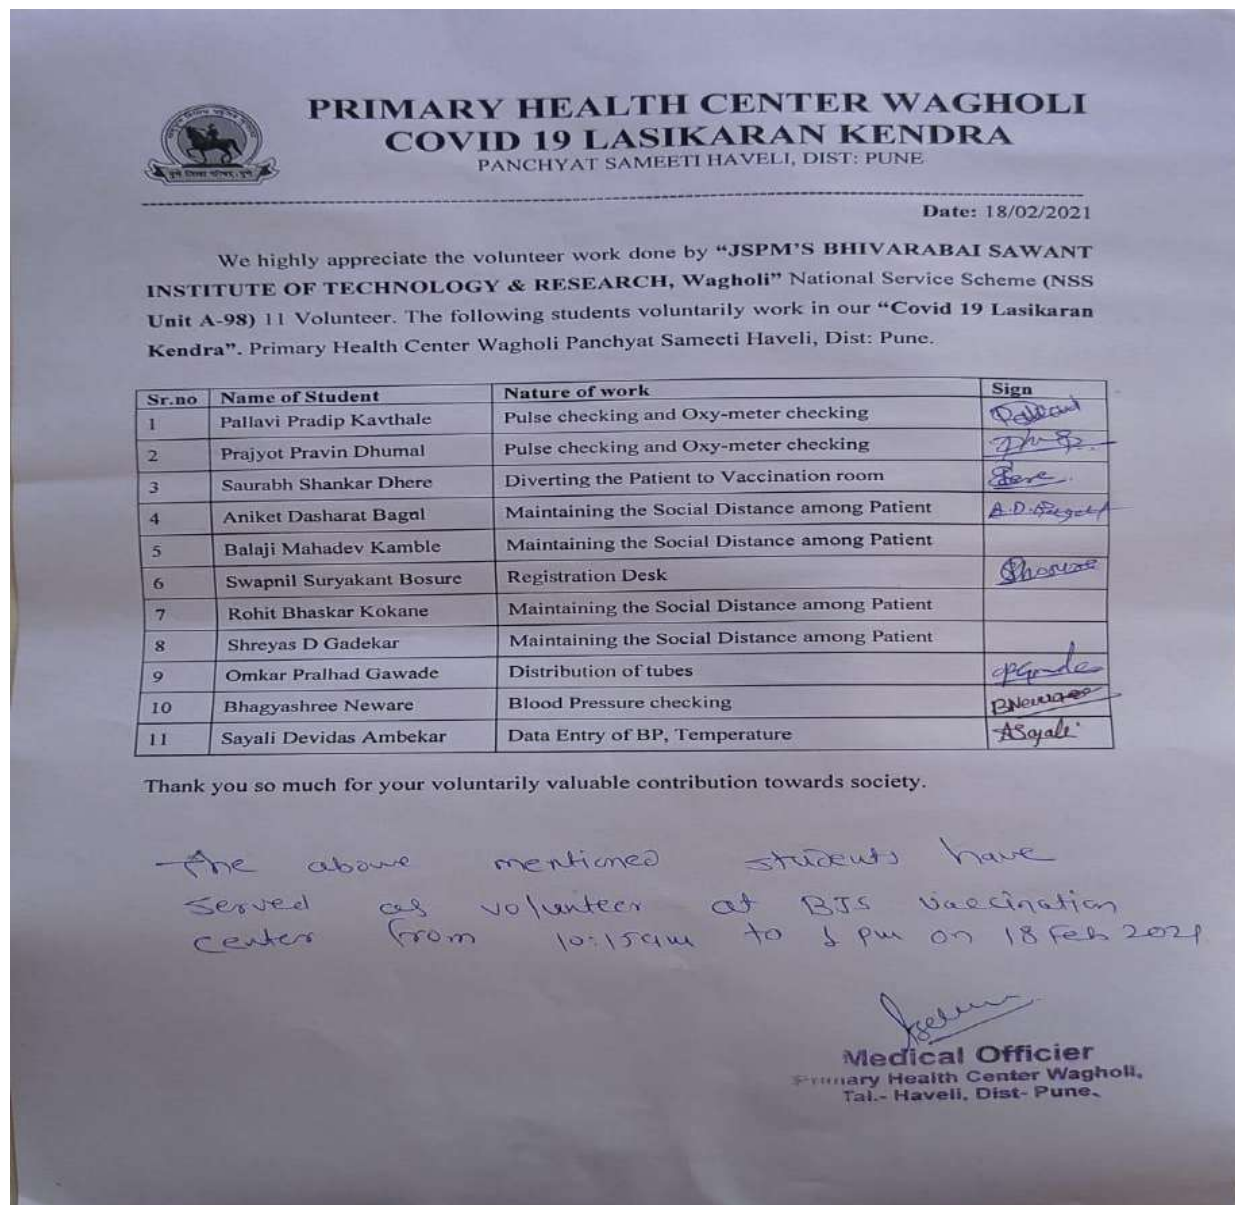 PRIMARY HEALTH CENTER WAGHOLI
COVID 19 LASIKARAN KENDRA
PANCHYAT SAMEETI HAVELI, DIST: PUNE
Date: 18/02/2021
We highly appreciate the volunteer work done by “JSPM’S BHIVARABAI SAWANT
INSTITUTE OF TECHNOLOGY & RESEARCH, Wagholi” National Service Scheme (NSS
Unit A-98) 11 Volunteer. The following students voluntarily work in our “Covid 19 Lasikaran
Kendra”. Primary Health Center Wagholi Panchyat Sameeti Haveli, Dist: Pune.
Sr.no Name of Student Nature of work Sign
1 Pallavi Pradip Kavthale Pulse checking and Oxy-meter checking
2 Prajyot Pravin Dhumal Pulse checking and Oxy-meter checking
3 Saurabh Shankar Dhere Diverting the Patient to Vaccination room
4 Aniket Dasharat Bagul Maintaining the Social Distance among Patient
5 Balaji Mahadev Kamble Maintaining the Social Distance among Patient
6 Swapnil Suryakant Bosure Registration Desk
7 Rohit Bhaskar Kokane Maintaining the Social Distance among Patient
8 Shreyas D Gadekar Maintaining the Social Distance among Patient
9 Omkar Pralhad Gawade Distribution of tubes
10 Bhagyashree Neware Blood Pressure checking BNeware
11 Sayali Devidas Ambekar Data Entry of BP, Temperature ASayali
Thank you so much for your voluntarily valuable contribution towards society.
The above mentioned students have
served as volunteer at BJS vaccination
center from 10:15am to 1 pm on 18 Feb 2021
Medical Officier
Primary Health Center Wagholi,
Tal.- Haveli, Dist- Pune.